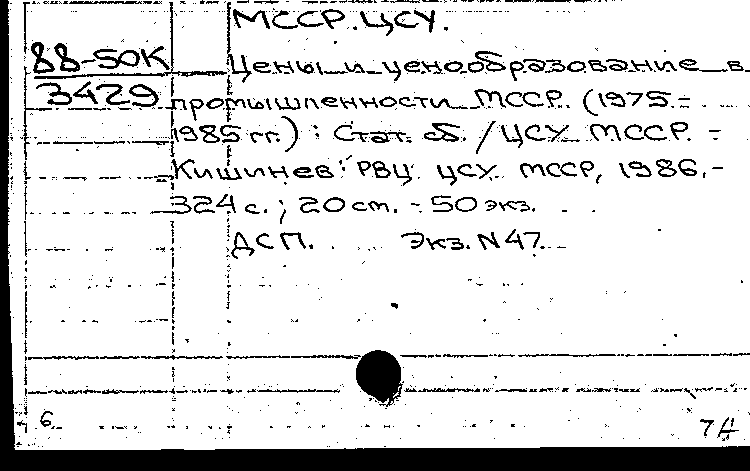 МССР. ЦСУ.
88-50К
3429
Цены и ценообразование в
промышленности МССР. (1975-
1985 гг.) : Стат. сб. / ЦСУ МССР. -
Кишинев: РВЦ ЦСУ МССР, 1986.-
324 с. ; 20 см. - 50 экз.
ДСП. Экз. N 47.
6